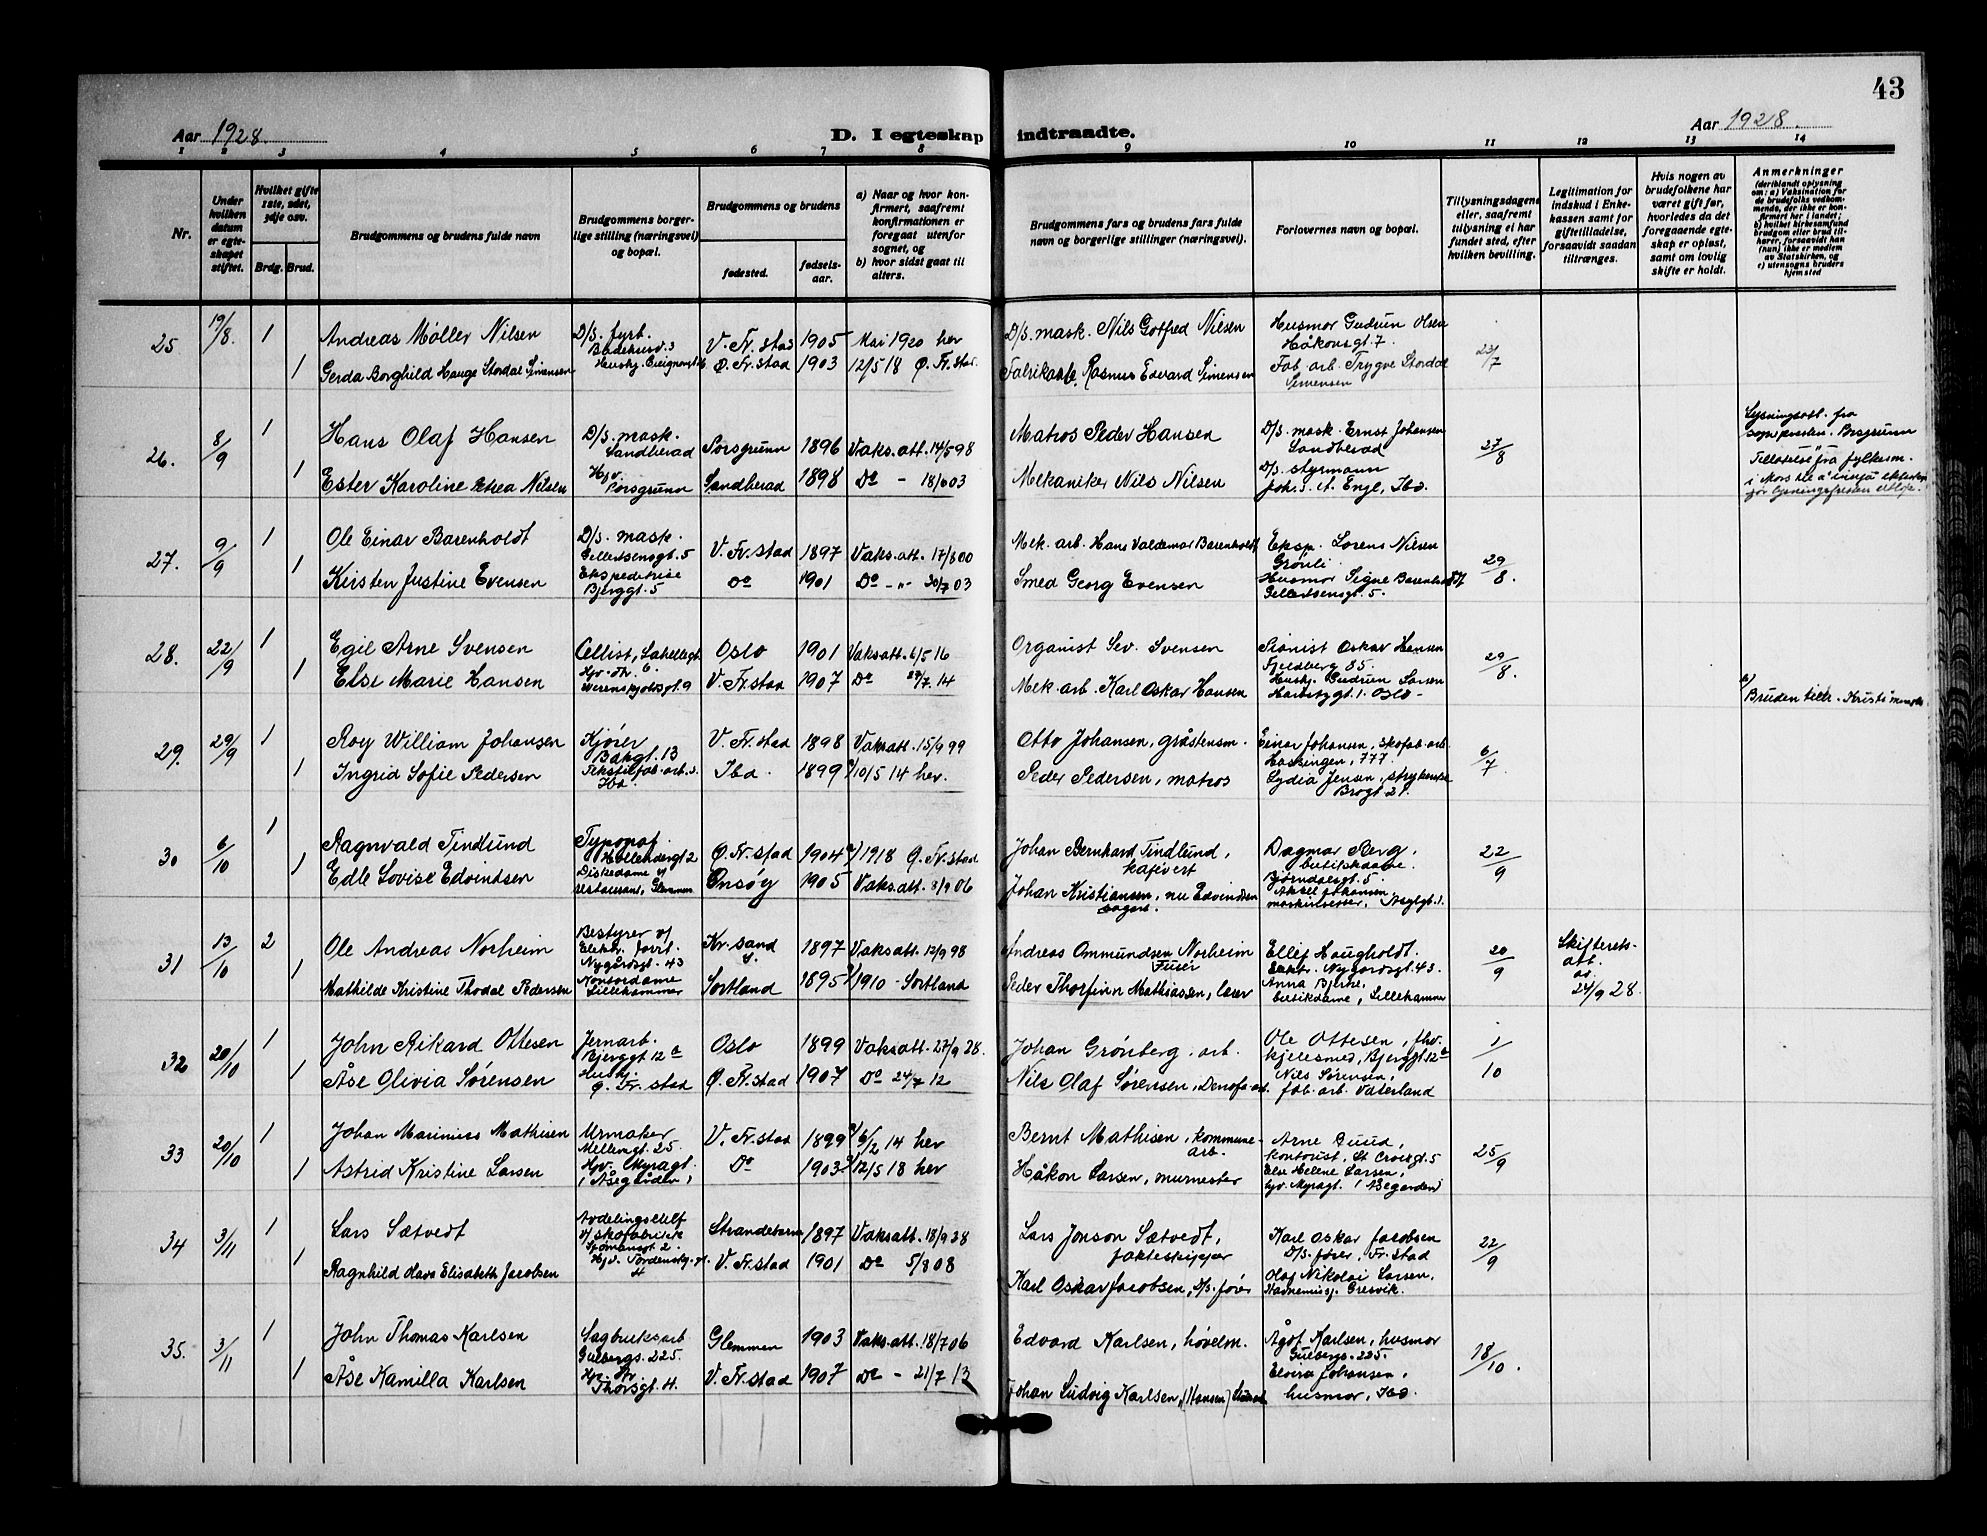 43
Aar 1928.
D. I egteskap indtraadte.
Aar 1928.
1 2 3 4 5 6 7 8 9 10 11 12 13 14
Nr.
Under hvilken datum er egteskapet stiftet.
Hvilket gifte 1ste, 2det, 3dje osv.
Brdg. Brud.
Brudgommens og brudens fulde navn
Brudgommens borgerlige stilling (næringsvei) og bopæl.
Brudgommens og brudens
fødested.
fødselsaar.
a) Naar og hvor konfirmert, saafremt konfirmationen er foregaat utenfor sognet, og
b) hvor sidst gaat til alters.
Brudgommens fars og brudens fars fulde navn og borgerlige stillinger (næringsvei).
Forlovernes navn og bopæl.
Tillysningsdagene eller, saafremt tillysning ei har fundet sted, efter hvilken bevilling.
Legitimation for indskud i Enkekassen samt for giftetilladelse, forsaavidt saadan tiltrænges.
Hvis nogen av brudefolkene har været gift før, hvorledes da det foregaaende egteskap er opløst, samt om lovlig skifte er holdt.
Anmerkninger
(deriblandt oplysning om: a) Vaksination for de brudefolks vedkommende, der ikke er konfirmert her i landet; b) hvilket kirkesamfund brudgom eller brud tilhører, forsaavidt han (hun) ikke er medlem av Statskirken, og c) utensogns bruders hjemsted
25 19/8. 1 Andreas Møller Nilsen D/S. fyrb. V. Fr. stad 1905 Mai 1920 her D/S. mask. Nils Gotfred Nilsen Husmor Gudrun Olsen Håkonsgt. 7. 23/7
1 Gerda Borghild Hauge Stordal Simensen Ø. Fr. stad 1903 12/5 18 Ø. Fr. stad. Rasmus Edvard Simensen Fab. arb. Trygve Stordal Simensen
26. 8/9 1 Hans Olaf Hansen D/S. mask. Sandherad Porsgrunn 1896 Vaks. att. 14/5 98 Matros Peder Hansen D/S. mask. Ernst Johansen Sandherad 27/8
1 Ester Karoline Petrea Nilsen Hjv. Porsgrunn Sandherad 1898 Do - 18/6 03 Mekaniker Nils Nilsen D/S. styrmann Joh. S. A. Engl, Ibd.
Lysningsatt. fra sognepresten i Porsgrunn
27. 9/9 1 Ole Einar Barenholdt D/S. mask. Gellertsensgt. 5 V. Fr. stad 1897 Vaks. att. 17/8 00 Mek. arb. Hans Valdemar Barenholdt Eksp. Lorens Nilsen Grønli 29/8.
1 Kirsten Justine Evensen Ekspeditrise Bjerggt. 5 Do 1901 Do -"- 30/7 03 Smed Georg Evensen Husmor Signe Barenholdt Gellertsensgt. 5.
28. 22/9 1 Egil Arne Svensen Cellist, Oslo 1901 Vaksatt. 6/5 16 Organist Sev. Svensen Pianist Oskar Hansen Fjeldberg 85. 29/8.
1 Else Marie Hansen Werenskjoldsgt. 9 V. Fr. stad 1907 Do 29/7. 14 Mek. arb. Karl Oskar Hansen Gudrun Larsen Oslo -
29. 29/9 1 Roy William Johansen Kjører Bakgt. 13 V. Fr. stad 1898 Vaksatt. 15/9 99 Otto Johansen, gråstensm. Einar Johansen, skofab. arb. 777. 6/7
1 Ingrid Sofie Pedersen Tekstilfab. arb. s. Ibd. Ibd. 1899 a) 10/5 14 her. Peder Pedersen, matros Lydia Jensen, strykerske Brogt 21.
30 6/10 1 Ragnvald Tindlund Typograf. Hollendergt 2 Ø. Fr. stad 1904 a) 1918 Ø. Fr. stad Johan Bernhard Tindlund, kafévert Dagmar Berg, butikkdame. Bjørndalsgt. 5. 22/9
1 Edle Lovise Edvindsen Diskedame v/ restaurant, Glemmen Onsøy 1905 Vaksatt. 8/9 06 Johan Kristiansen, nu Edvindsen Aksel Johansen Asylgt. 1.
31 13/10 2 Ole Andreas Norheim Bestyrer v/ Elektr. forr. Nygårdsgt. 43 Kr. sand S. 1897 Vaksatt. 12/9 98 Andreas Ommundsen Norheim Ellef Haugholdt. Nygårdsgt. 43. 20/9 Skifterets-att. av 24/9 28.
1 Mathilde Kristine Thodal Pedersen Kontordame Lillehammer Sortland 1895 1910 - Sortland Peder Thorfinn Mathiassen, lærer Anna Bjerke, butikdame, Lillehammer
32 20/10 1 John Rikard Ottesen Jernarb. Bjerggt 12 c Oslo 1899 Vaksatt. 27/9 28. Johan Grønberg. arb. Ole Ottesen, fhv. kjelesmed, Bjerggt. 12 c 1/10
1 Åse Olivia Sørensen Hushj. Ø. Fr. stad Ø. Fr. stad 1907 Do 24/7 12 Nils Olaf Sørensen, Denofa-arb. Nils Sørensen, fab. arb. Vaterland
33 20/10 1 Johan Marinius Mathisen Urmaker Mellemgt. 25. V. Fr. stad 1899 a) 6/2 14 her Bernt Mathisen, kommune-arb. Arne Ruud, kontorist, St Croixgt. 5 25/9
1 Astrid Kristine Larsen Hjv. Myragt. Do 1903 12/5 18 her Håkon Larsen, murmester Else Helene Larsen, hjv. Myragt.
34 3/11 1 Lars Sætvedt Avdelingssjef v/ skofabrikk Strandebarm 1897 Vaksatt. 18/9 28 Lars Jonson Sætvedt, jakteskipper Karl Oskar Jacobsen D/S. fører, Fr. stad 22/9
1 Ragnhild Clara Elisabeth Jacobsen Hjv. V. Fr. stad 1901 Do 5/8 08 Karl Oskar Jacobsen, D/S. fører Olaf Nikolai Larsen, Gresvik.
35. 3/11 1 John Thomas Karlsen Sagbruksarb Gulbergs. 225. Glemmen 1903 Vaks. att. 18/7 06 Edvard Karlsen, høvelm. Ågot Karlsen, husmor Gulbergs. 225. 18/10.
1 Åse Kamilla Karlsen Thorsgt. 4. V. Fr. stad 1907 Do - 21/7 13 Johan Ludvig Karlsen, (Hansen) Elvira Johansen, husmor, Ibd.